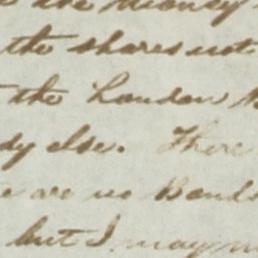 the money
the shares not
the London
dy else. There
we are no Bonds
but I may